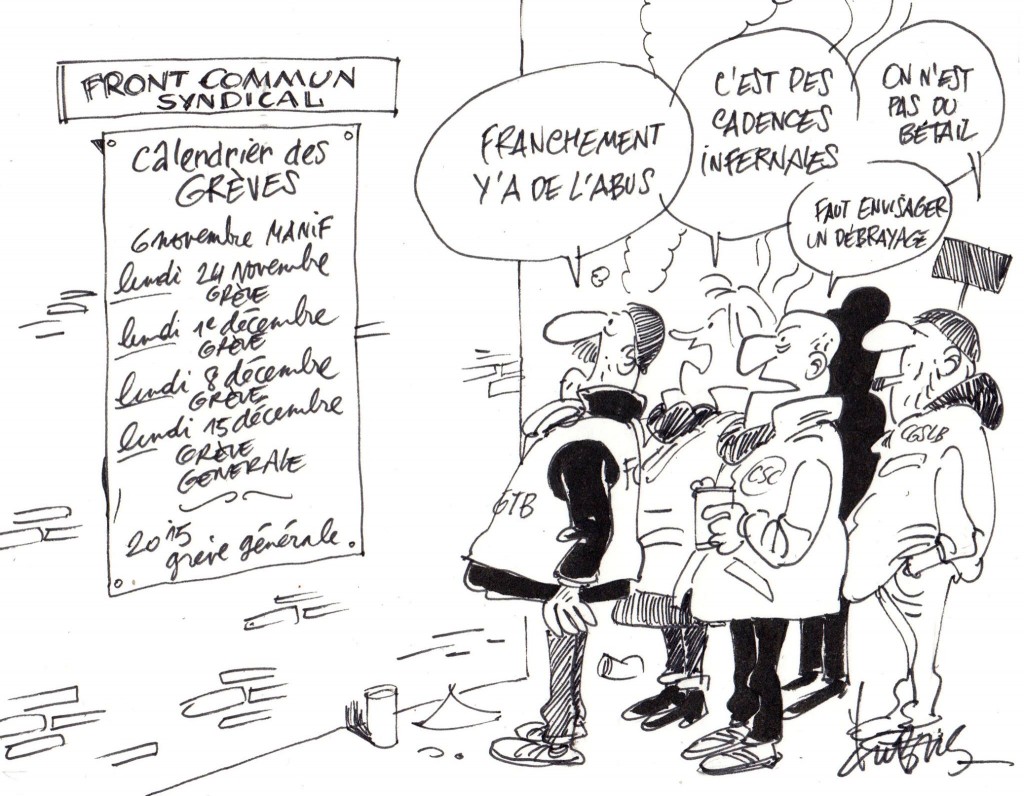 FRONT COMMUN
SYNDICAL
Calendrier des
GRÈVES
6 novembre MANIF
lundi 24 Novembre
GRÈVE
lundi 1e décembre
GRÈVE
lundi 8 décembre
GRÈVE
lundi 15 décembre
GRÈVE
GENERALE
2015
grève générale.
FRANCHEMENT
Y'A DE L'ABUS
C'EST DES
CADENCES
INFERNALES
ON N'EST
PAS DU
BÉTAIL
FAUT ENVISAGER
UN DÉBRAYAGE
GTB
FG
CSC
CGSLB